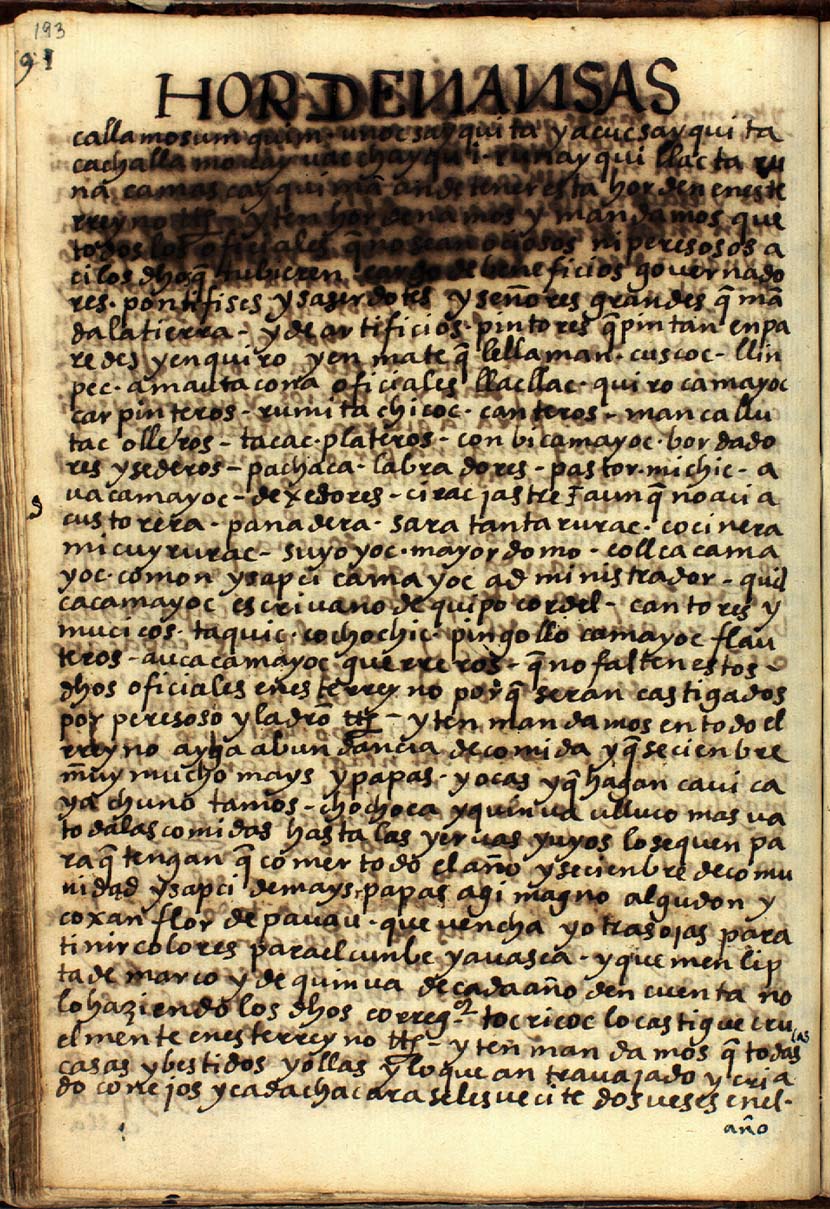 193
91
HORDENANSAS
callamosum quim. unocsayquita yacucsayquita
cachalla mo cay uacchayqui. runayqui llacta ru
nā camascayquimā an de tener esta horden en este
rreyno ttp̄ - yten hordenamos y mandamos que
todos los oficiales q̄ no sean ociosos ni peresosos a
ci los dhos q̄ tubieren cargo de beneficios governado
res. pontifises ysaserdotes yseñores grandes q̄ mā
da la tierra - y de artificios. pintores q̄ pintan en pa
redes y en quiro y en mate q̄ le llaman. cuscoc - llin
pec. amauta cona oficiales llacllac. quiro camayoc
carpinteros - rumita chicoc. canteros - manca llu
tac olleros - tacac. plateros - conbicamayoc. bordado
res ysederos - pachaca. labradores - pastor. michic - a
uacamayoc - dexedores - cirac jastre Faunq̄ no auia
custorera - panadera. sara tanta rurac. cocinera
micuy rurac - suyoyoc. mayordomo - collca cama
yoc. comon ysapci camayoc administrador - quil
cacamayoc escriuano de quipo cordel - cantores y
mucicos. taquic. cochochic. pingollo camayoc flau
teros - aucacamayoc. guerreros - q̄ no falten estos
dhos oficiales en este rreyno porq̄ seran castigados
por peresoso y ladrō ttp̄ - yten mandamos en todo el
rreyno ayga abundancia de comida y q̄ se cienbre
muy mucho mays y papas. y ocas y q̄ hagan caui ca
ya chuno tamos - chochoca yquinua ulluco masua
todas las comidas hasta las yeruas yuyos lo sequen pa
ra q̄ tengan q̄ comer todo el año yse cienbre de comu
nidad ysapci de mays, papas agi magno algudon y
coxan flor de pauau. que uencha y otras ojas para
tinir colores para el cunbe yauasca - y que menlip
ta de marco y de quinua de cada año den cuenta no
lo haziendo los dhos correg.or tocricoc lo castigue cru
elmente en este rreyno ttp̄ - yten mandamos q̄ todas las
casas y bestidos y ollas y lo que an trauajado y cria
do conejos y cada chacara se les uecite dos ueses en el -
año